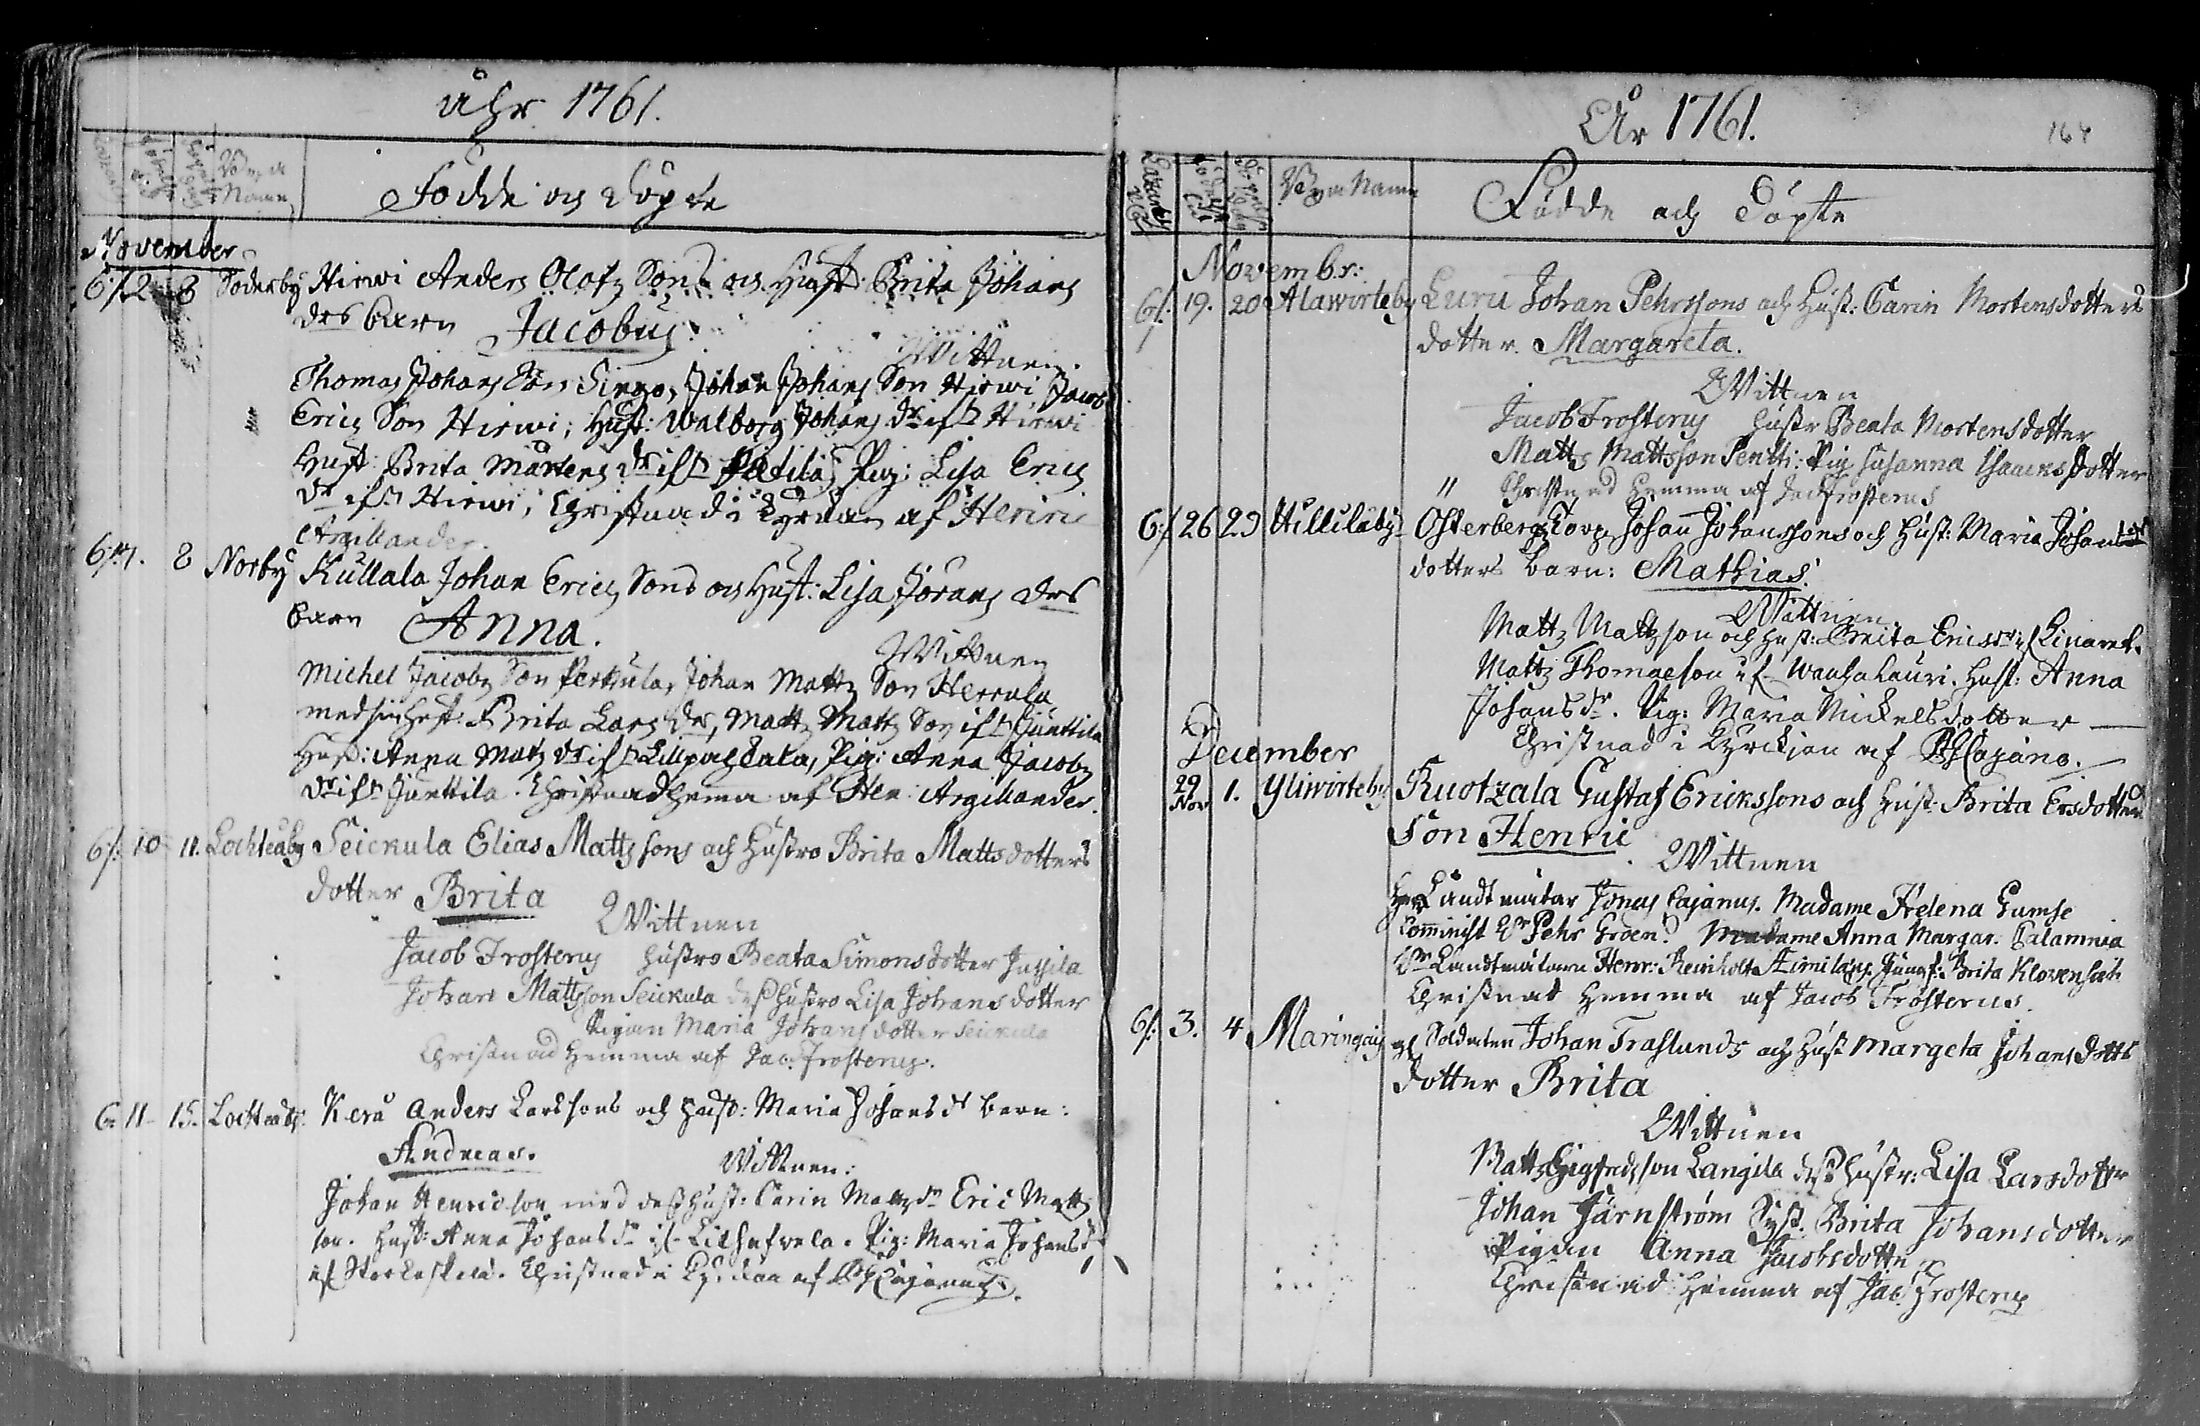 Åhr 1761.
Byens Namn
Födde och Döpte
November
6/: 2 8 Söderby Hirwi Anders Olofz Sons och Hust: Brita Johans
drs barn Jacobus.
Wittnen.
Thomas Johans Son Sirgo, Johan Johans Son Hirwi Jacob
Erics Son Hirwi; Hust: Walborg Johans dr ifr Hirwi
Hust: Brita Mårtens dr ifr Pietilä; Pig: Lisa Erics
dr ifr Hirwi; Christnad i Kyrkan af Henric
Argillander.
6/: 7. 8 Norby Kullala Johan Erics Sons och Hust: Lisa Jörans drs
barn Anna.
Wittnen
Michel Jacobs Son Perkula, Johan Matts Son Herrala
med sin Hust: Brita Lars dr, Matts Matts Son ifr Junttila
Hust: Anna Matz dr ifr Lillpachkala, Pig: Anna Jacobs
dr ifr Junttila. Christnad hema af Hen: Argillander.
6/: 10 11. Lochteåby Seickula Elias Mattssons och Hustro Brita Mattsdotters
dotter Brita
Wittnen
Jacob Frosterus hustro Beata Simonsdotter Jussila
Johan Mattsson Seickula dess hustro Lisa Johansdotter
Pigan Maria Johansdotter Seickula
Christnad hemma af Jac: Frosterus.
6: 11 15. Lochteåby. Kerå Anders Larssons och Hust: Maria Johansdr barn:
Andreas.
Wittnen:
Johan Henricson med dess hust: Carin Mattzdr Eric Matts
son. Hust: Anna Johansdr if Lill
Pig: Maria Johansdr
if Christnad i Kyrckan af Cajanus.
År 1761.
164
Byens Namn
Födde och Döpte
Novembr:
6/: 19. 20 Alawirteby Luru Johan Pehrssons och Hust: Carin Mortensdotters
dotter Margareta.
Wittnen
Jacob Frosterus Hustr Beata Mortensdotter
Matts Mattsson Pentti: Pig Susanna Isaacsdotter
" Christnad hemma af Jac Frosterus
6/: 26 29 Hillilaby Österbergs Torp. Johan Johanssons och Hust: Maria Johans
dotters barn: Mathias.
Wittnen
Mattz Mattzson och Hust: Brita Ericsdr if Linaret.
Mattz Thomaeson if Wanhalauri. Hust: Anna
Johansdr. Pig: Maria Mickelsdotter
Christnad i Kyrckian af Cajano.
December
29 Nov 1. Yliwirteby Kuotzala Gustaf Erickssons och Hust. Brita Ersdotters
Son Henric
Wittnen
Herr Landtmätar Jonas Cajanus. Madame Helena Gumse
Comminist Hr Pehr Groen. Madame Anna Margar: Calamnia
Hr Landtmätaren Henr: Reinholt Æimilæus Jungf: Brita Klövensich
Christnat hemma af Jacob Frosterus.
6/: 3. 4 Maringais af Soldaten Johan Traslunds och Hust Margeta Johans dotts
dotter Brita
Wittnen
Matts Sigfredsson Langila dess hustr: Lisa Larsdotter
Johan Järnström Syst. Brita Johansdotter
Pigan Anna Jacobsdotter
Christnad hemma af Jac Frosterus